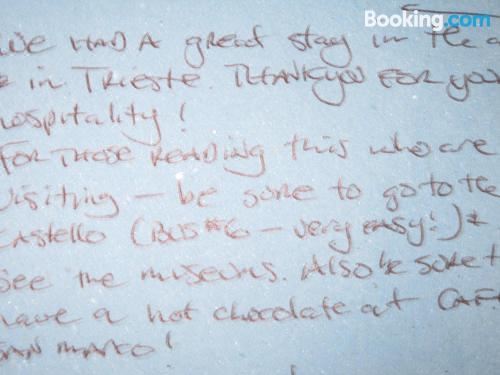 Booking.com
WE HAD A great stay in the
in TRIESTE. THANKYOU FOR YOU
hospitality!
FOR THOSE READING this who are
visiting – be sure to go to the
Castello (BUS #6 – very easy!) *
see the museums. Also be sure t
have a hot chocolate at CAF
SAN MARCO!